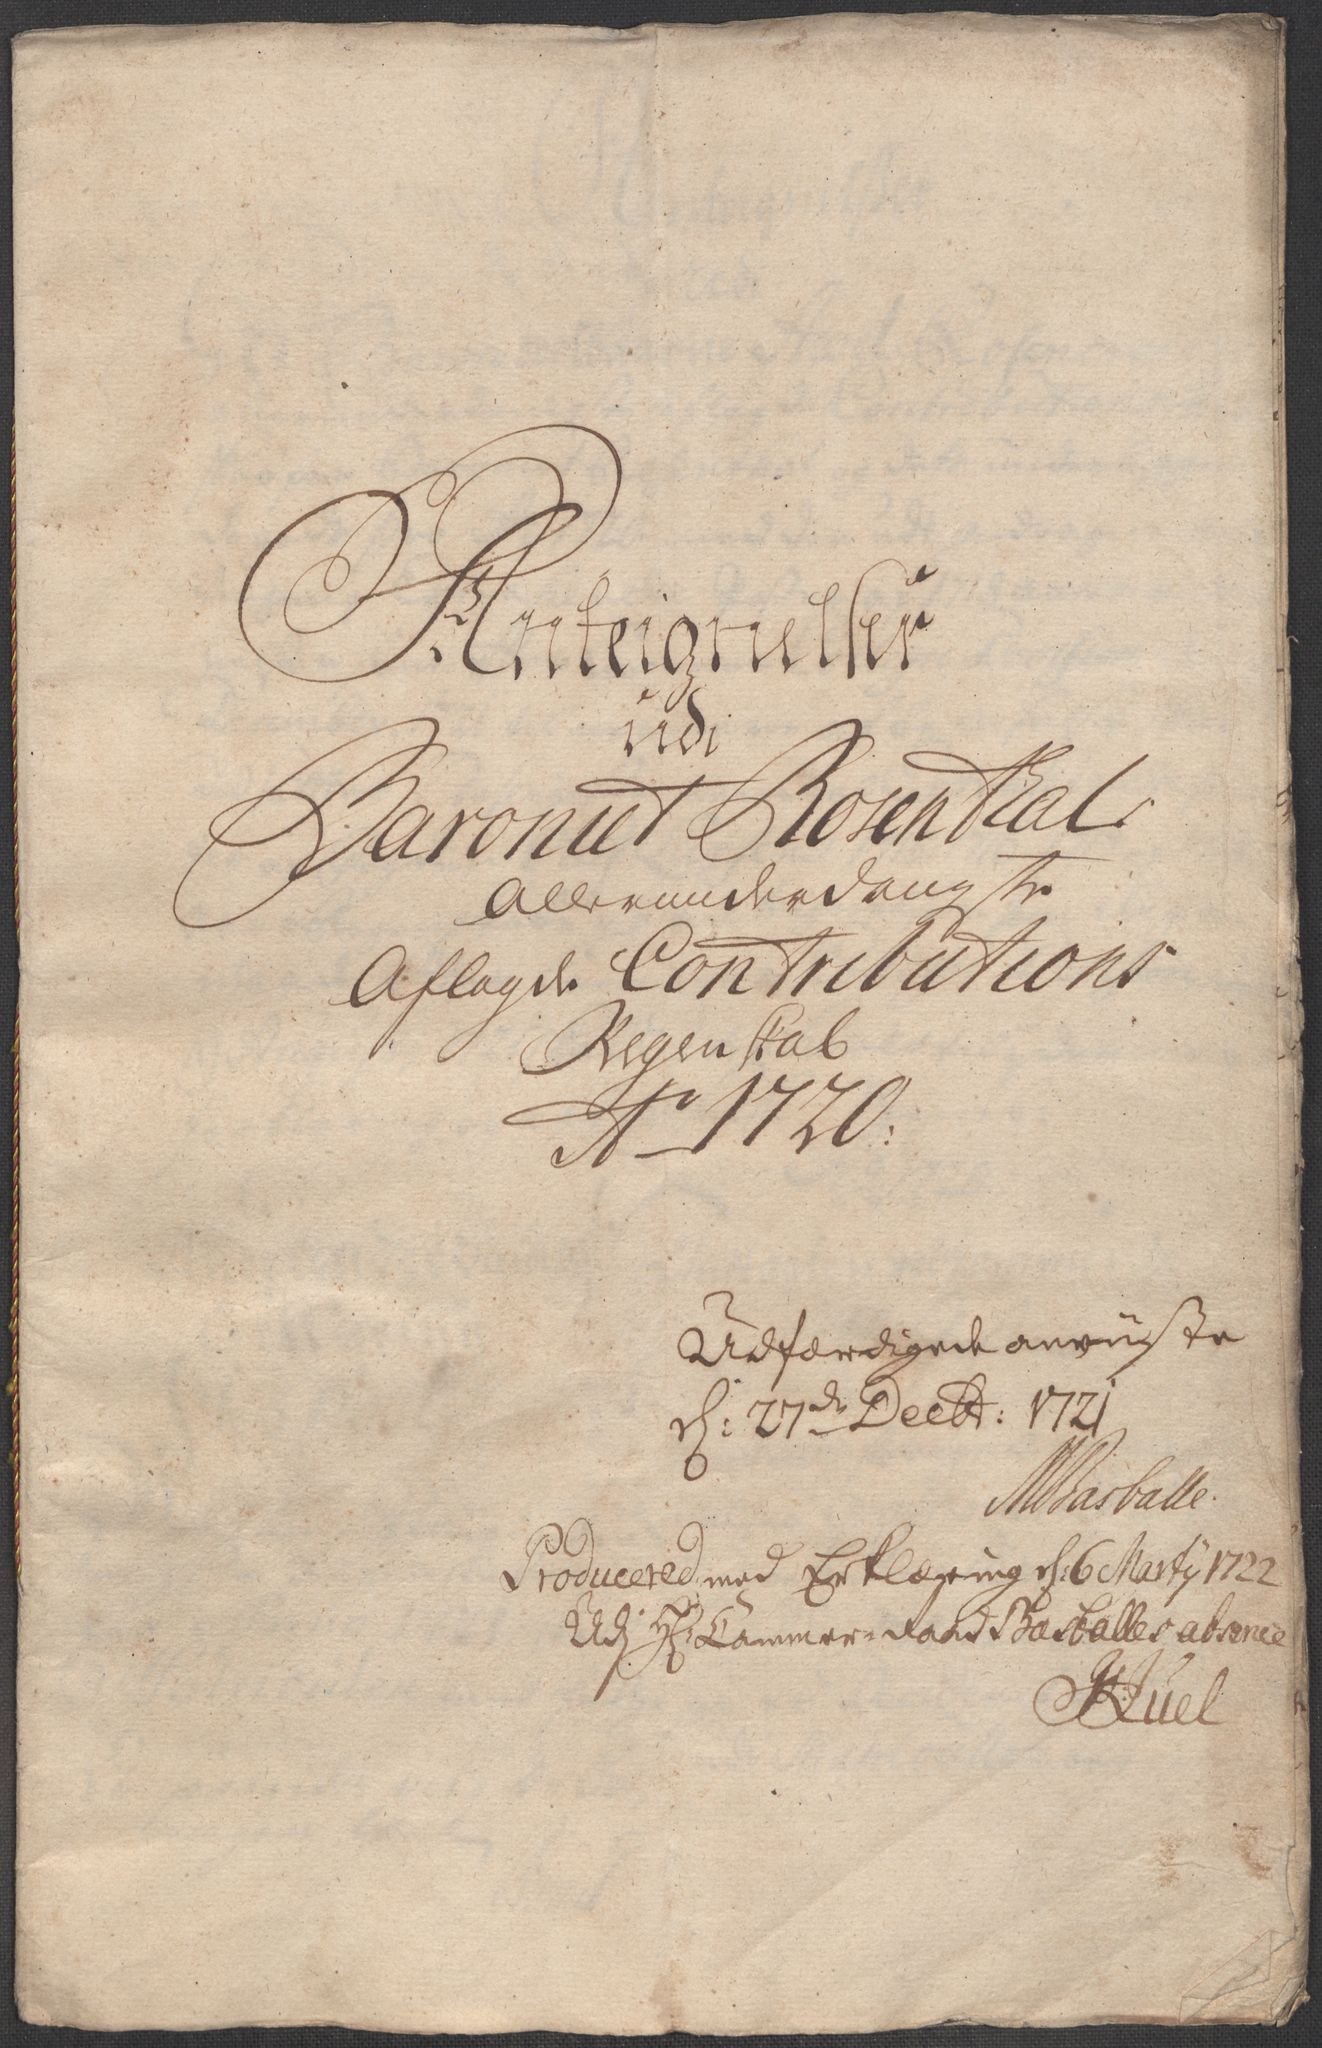 Anteignelser
udi
Baroniet Rosendal
Allerunderdanigste
Aflagde Contributions
Regenskab
Ao 1720:
Udfærdigede
d: 27de Decbr: 1721
Basballe.
Producered med Erklæring d: 6 Martij 1722
Udj Hr: Cammer-Raad Basballes absence
Juel